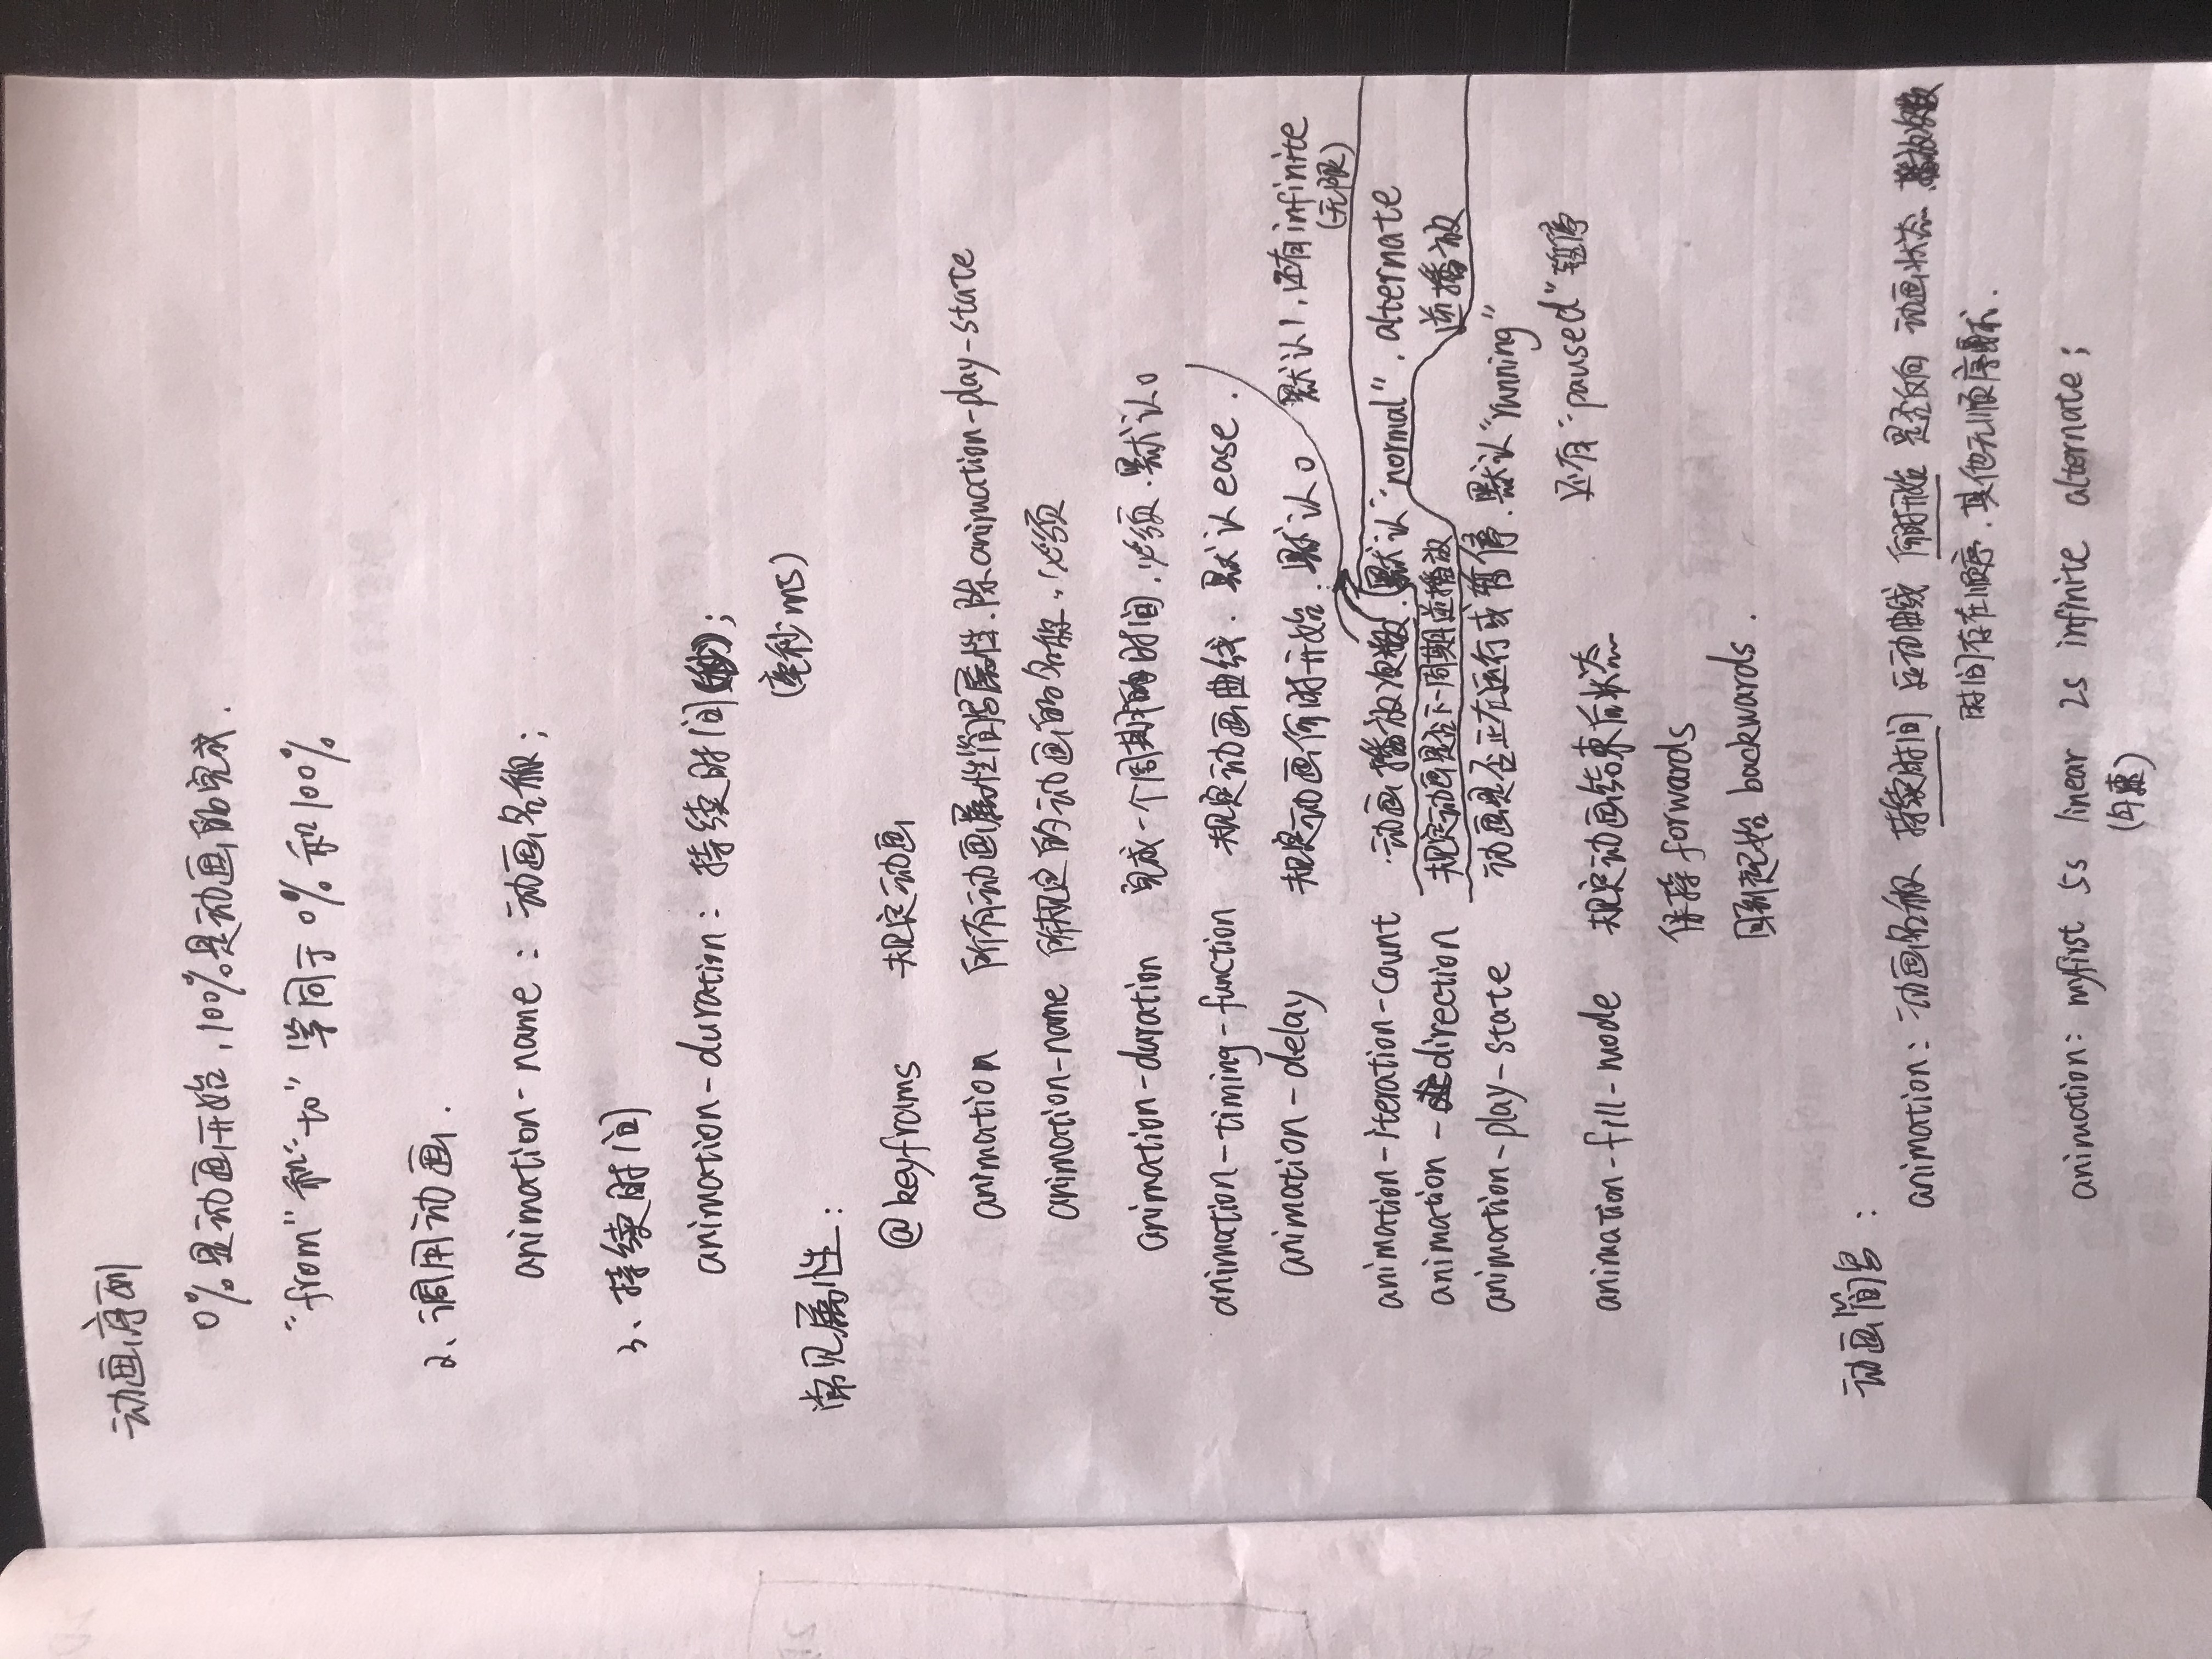 动画序列
0%是动画开始,100%是动画的完成.
"from"和"to"等同于0%和100%
2、调用动画.
animation-name:动画名称;
3、持续时间
animation-duration:持续时间(秒);
(毫秒ms)
常见属性:
@keyframs 规定动画
animation 所有动画属性简写属性.除animation-play-state
animation-name 所规定的动画的名称.必须
animation-duration 完成一个周期的时间.必须.默认0
animation-timing-function 规定动画曲线.默认ease.
animation-delay 规定动画何时开始.默认0
默认1,还有infinite
(无限)
animation-iteration-count 动画播放次数.
默认"normal".alternate
animation-direction 规定动画是否下一周期逆播放
逆播放
animation-play-state 动画是否正在运行或暂停.默认"running"
还有"paused"暂停
animation-fill-mode 规定动画结束后状态
保持forwards
回到起始backwards.
动画简写:
animation:动画名称 持续时间 运动曲线 何时开始 是否反向 动画状态 播放次数
时间存在顺序.其他无顺序要求.
animation: myfirst 5s linear 2s infinite alternate;
(匀速)